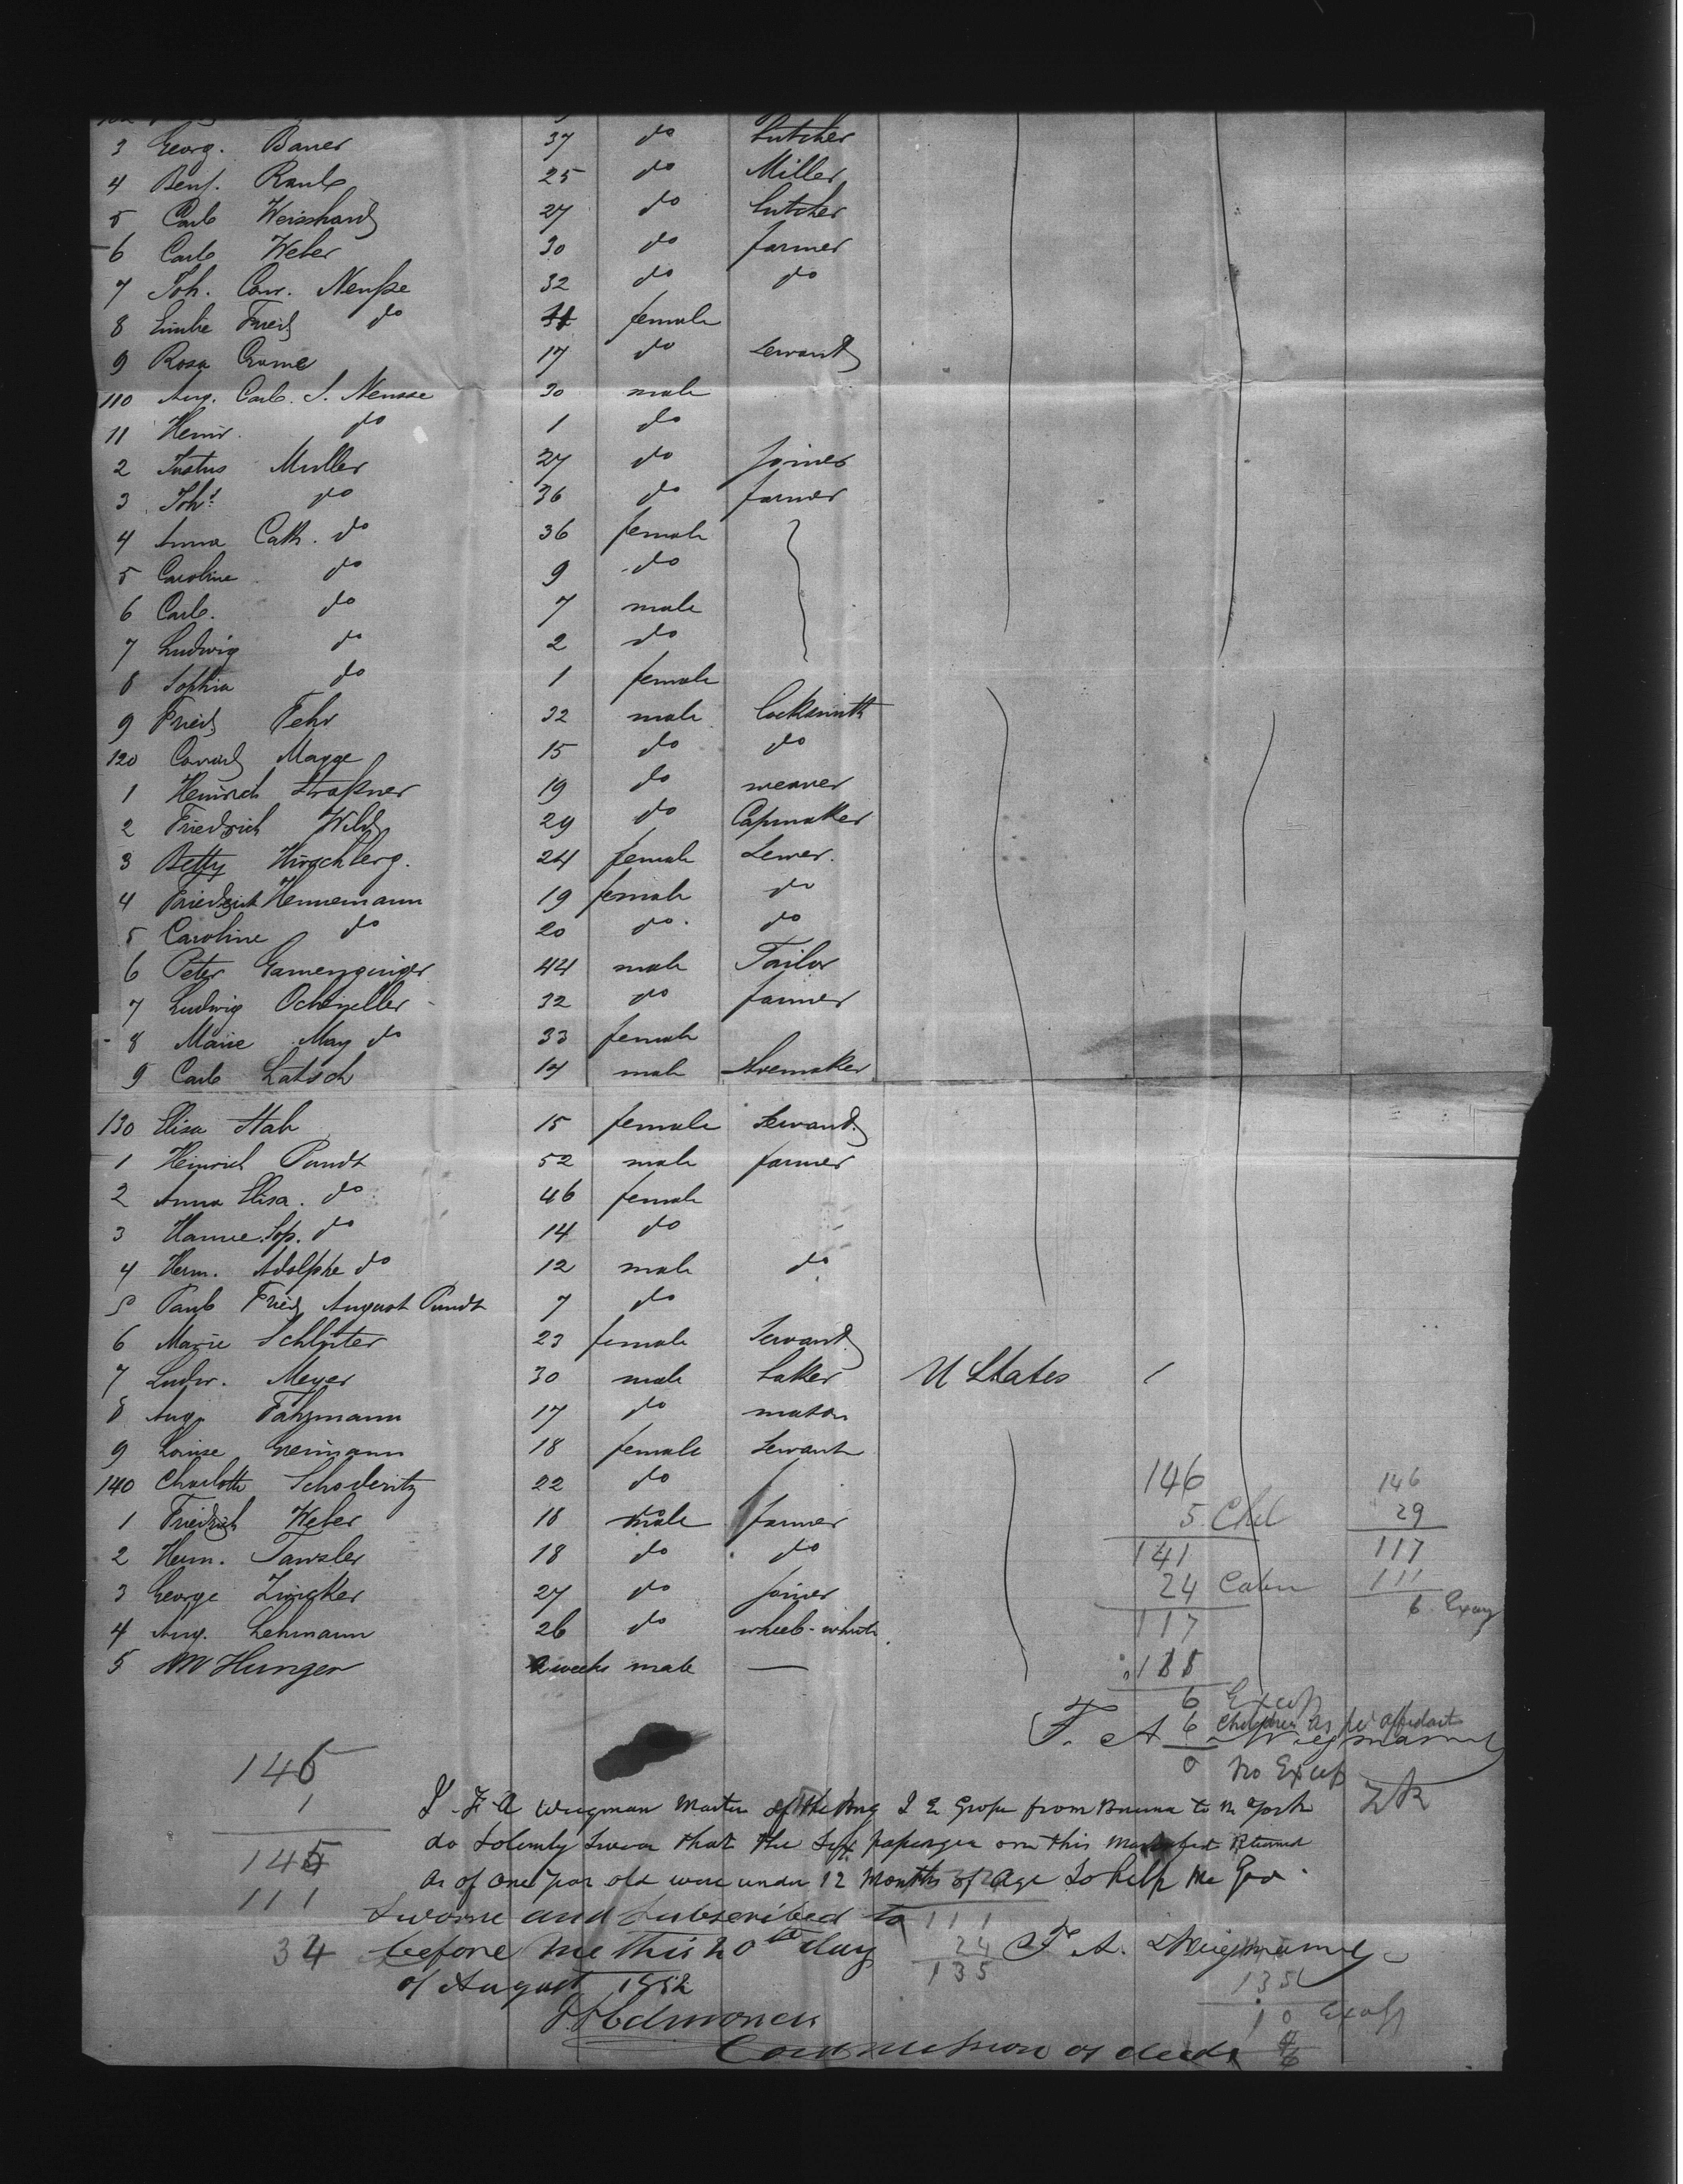 3 Georg. Bauer 37 do butcher
4 Benj. 25 do Miller
5 Carl Weisshard 27 do butcher
6 Carl Weber 30 do farmer
7 Joh. Conr. Neuße 32 do do
8 Emilie Fried do female
9 Rosa Crame 17 do servant
110 Aug. Carl. S. Neusse 30 male
11 Heinr. do 1 do
2 Justus Muller 27 do joiner
3 Joh.s do 36 do farmer
4 Anna Cath. do 36 female
5 Caroline do 9 do
6 Carl. do 7 male
7 Ludwig do 2 do
8 Sophia do 1 female
9 Fried Fehr 32 male locksmith
120 Conrad Magge 15 do do
1 Heinrich Straßner 19 do weaver
2 Friedrich Wild 29 do Capmaker
3 Betty Hirschberg. 24 female Sewer.
4 Hennemann 19 female do
5 Caroline do 20 do. do
6 Peter 44 male Tailor
7 Ludwig 32 do farmer
8 Marie May do 33 female
9 Carl Latsch 17 male Shoemaker
130 Elisa Stah 15 female Servand
1 Heinrich Pundt 52 male farmer
2 Anna Elisa. do 46 female
3 Hanne. Sop. do 14 do
4 Herm. Adolphe do 12 male do
5 Paul Fried August Pundt 7 do
6 Marie Schlüter 23 female Servand
7 Ludw. Meyer 30 male baker U States /
8 Aug. Fahrmann 17 do mason
9 Louise 18 female Servant
140 Charlotte Schoderitz 22 do
1 Friedrich Weber 18 male farmer
2 Herm. Tansler 18 do do
3 George Zincker 27 do joiner
4 Aug. Lehmann 26 do
5 Hunger 2 weeks male —
146 146
5 Chil 29
141 117
24 111
117 6
6
6 Children as per affidavit
0 No Excess
F. A. Wiegmann
146
1
145
111
34
I F A Wiegman Master of the Brig from to N York
do Solemly Swear that the passenger on this
as of One year old were under 12 Months of Age So help Me God.
Sworne and Subscribed to
before me this 20th day
of August 1852
F. A. Wiegmann
111
24
135
135
10
6
Commissioner of deeds